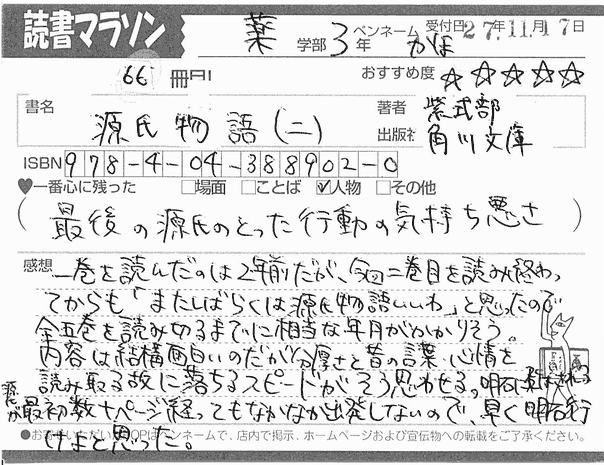 読書マラソン
薬 学部 3年 ペンネーム かほ 受付日 27年.11.月17日
66 冊目!
おすすめ度 ☆☆☆☆☆
書名 源氏物語(二)
著者 紫式部
出版社 角川文庫
ISBN 978-4-04-388902-0
♥一番心に残った □場面 □ことば ☑人物 □その他
(最後の源氏のとった行動の気持ち悪さ)
感想 一巻を読んだのは2年前だが、今回二巻目を読み終わっ
てからも「またしばらくは源氏物語いいわ」と思ったので
全五巻を読み切るまでに相当な年月がかかりそう。
内容は結構面白いのだが分厚さと昔の言葉、心情を
読み取る故に落ちるスピードがそう思わせる。明石に
源氏が最初数十ページ経ってもなかなか出発しないので、早く明石行
けよと思った。
POPはペンネームで、店内で掲示、ホームページおよび宣伝物への転載をご了承ください。